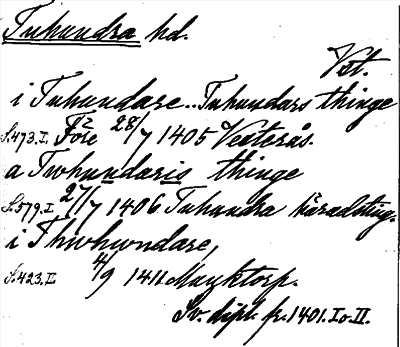 Tuhundra hd.
Vst.
i Tuhundare.. Tuhundars thinge
S.473.I. Före 28/7 1405 Vesterås.
a Twhundaris thinge
S.579.I 27/7 1406 Tuhundra häradsting.
i Thwhwndare,
S.423.II. 4/9 1411 Mayktorp.
Sv. dipl. fr. 1401. I o. II.